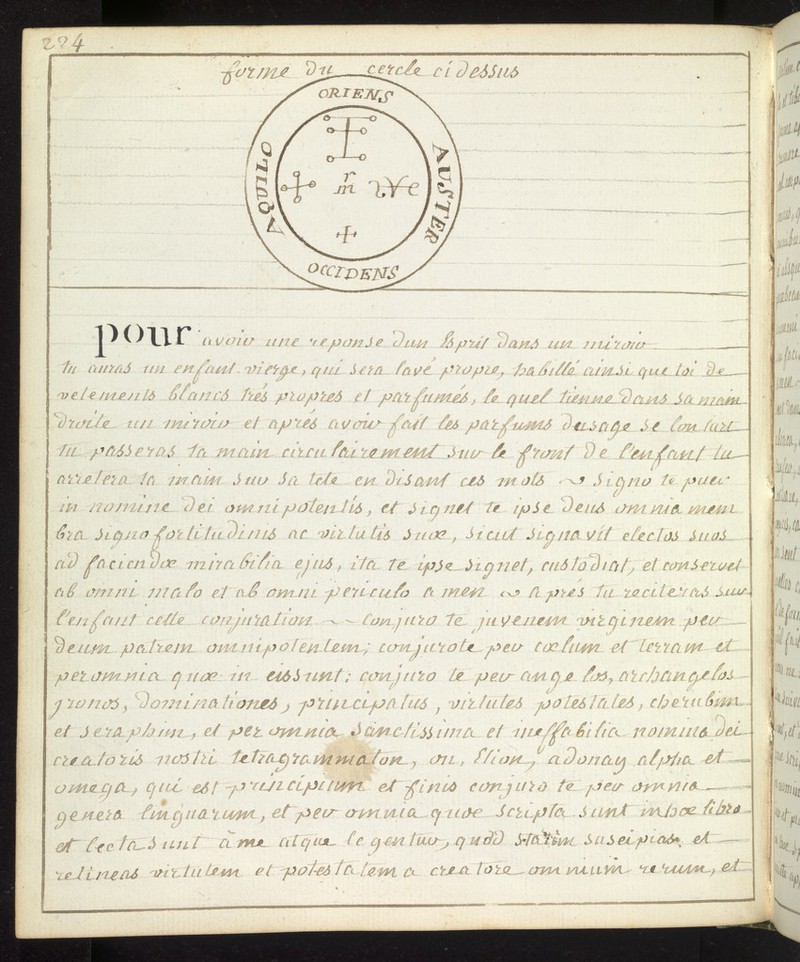 224
forme du cercle ci dessus
ORIENS
AQUILO
AUSTER
r
m
OCCIDENS
pour avoir une reponse dun Esprit dans un miroir
tu auras un enfant vierge, qui sera lavé propre, habillé ainsi que toi de
vetements blancs trés propres et parfumés, le quel tienne dans sa main
droite un miroir et aprés avoir fait les parfums dusage se lon lart
tu passeras ta main circulairement sur le front de l'enfant tu
arretera ta main sur sa tete en disant ces mots signo te puer
in nomine dei omnipotentis, et signet te ipse deus omnia mem
bra signo fortitudinis ac virtutis suæ, sicut signavit electos suos
ad faciendæ mirabilia ejus, ita te ipse signet, custodiat, et conservet
ab omni malo et ab omni periculo a men aprés tu reciteras sur
l'enfant cette conjuration conjuro te juvenem virginem per
deum patrem omnipotentem; conjurote per cœlum et terram et
per omnia quæ in eissunt; conjuro te per angelos, archangelos
tronos, dominationes, principatus, virtutes potestates, cherubim
et seraphim, et per omnia sanctissima et ineffabilia nomina dei
creatoris nostri tetragrammaton, on, Elion, adonay alpha et
omega, qui est principium et finis conjuro te per omnia
genera linguarum, et per omnia quæ scripta sunt inhoc libro
et lecta sunt a me atque legentur, quod statim suseipias, et
retineas virtutem et potestatem a creatore omnium rerum, et